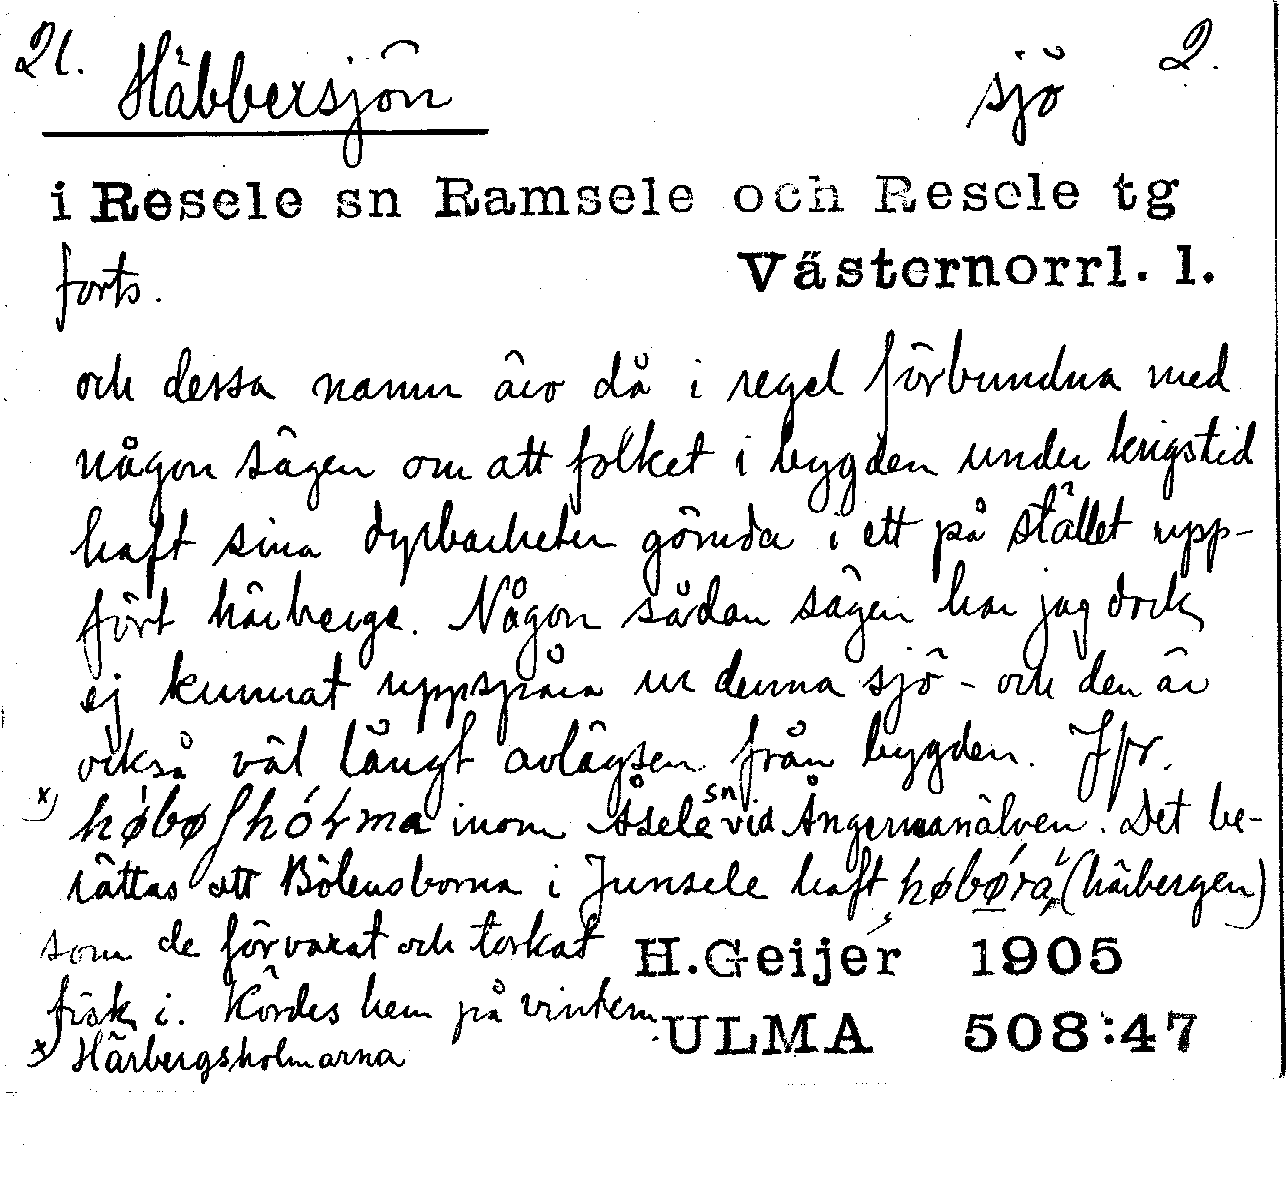 21. Häbbersjön sjö 2.
i Resele sn Ramsele och Resele tg
forts. Västernorrl. l.
och dessa namn äro då i regel förbundna med
någon sägen om att folket i bygden under krigstid
haft sina dyrbarheter gömda i ett på stället upp-
fört härberge. Någon sådan sägen har jag dock
ej kunnat uppspåra ur denna sjö - och den är
också väl långt avlägsen från bygden. Jfr.
x) høbøʃhóɽma inom Åsele sn vid Ångermanälven. Det be-
rättas att Bölensborna i Junsele haft høbǿrá, (härbergen)
som de förvarat och torkat H. Geijer 1905
fisk i. Kördes hem på vintern. ULMA 508:47
x) Härbergsholmarna